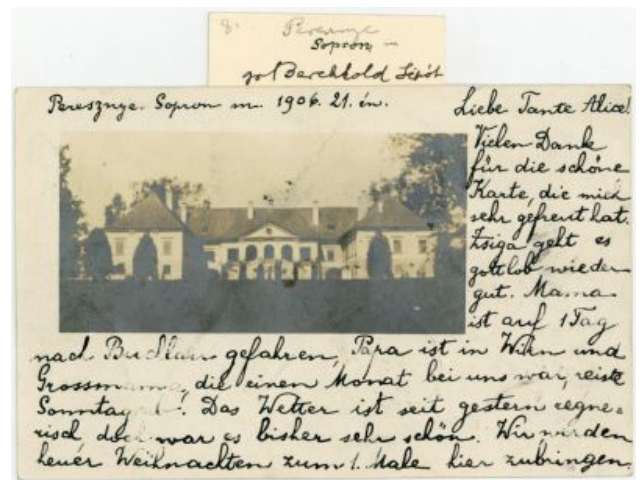 8. Peresznye
Sopron, –
gf Berchtold Lipót
Peresznye. Sopron m. 1906. 21. én.
Liebe Tante Alice!
Vielen Dank
für die schöne
Karte, die mich
sehr gefreut hat.
Zsiga geht es
gottlob wieder
gut. Mama
ist auf 1 Tag
nach gefahren, Papa ist in Wien und
Grossmama, die einen Monat bei uns war, reist
Sonntag. Das Wetter ist seit gestern regne-
risch, doch war es bisher sehr schön. Wir werden
heuer Weihnachten zum 1. Male hier zubringen.